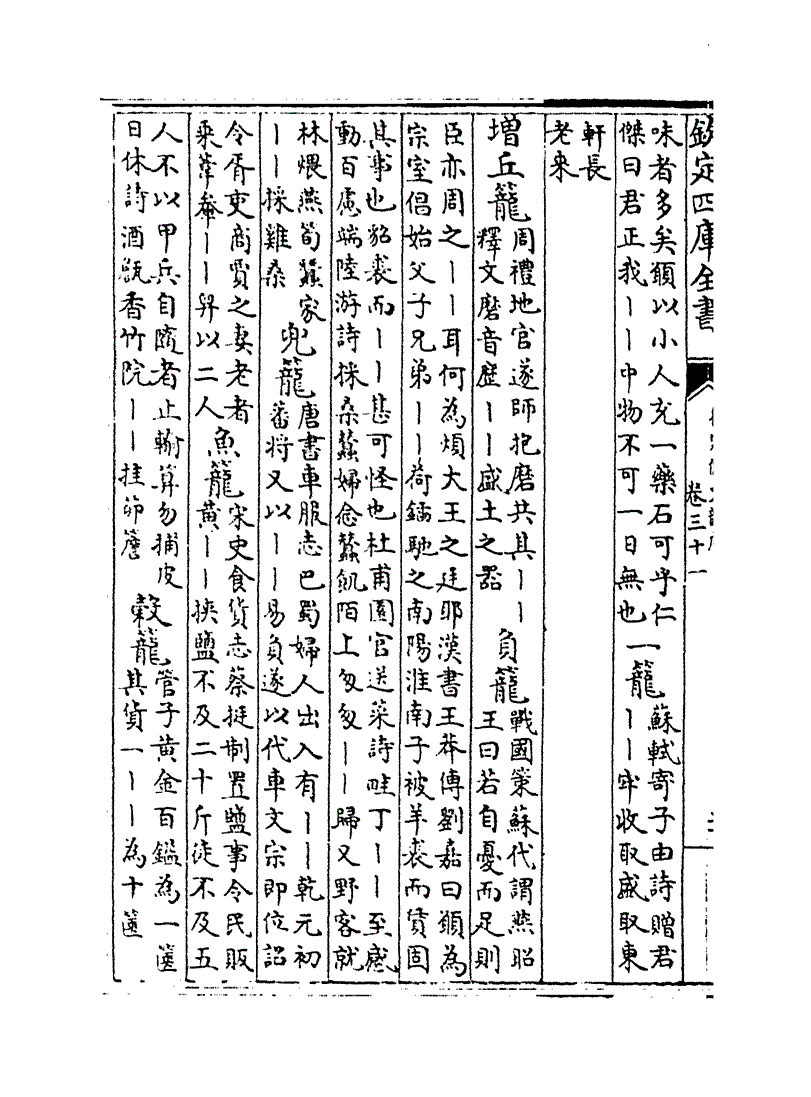 欽定四庫全書
卷三十一
味者多矣願以小人充一藥石可乎仁
傑曰君正我丨丨中物不可一日無也
一籠
蘇軾寄子由詩贈君
丨丨牢收取盛取東
軒長
老來
增丘籠
周禮地官遂師抱磨共其丨丨
釋文磨音歷丨丨盛土之器
負籠
戰國策蘇代謂燕昭
王曰若自憂而足則
臣亦周之丨丨耳何為煩大王之廷耶漢書王莽傳劉嘉曰願為
宗室倡始父子兄弟丨丨荷鍤馳之南陽淮南子被羊裘而賃固
其事也貂裘而丨丨甚可怪也杜甫園官送菜詩畦丁丨丨至感
動百慮端陸游詩採桑蠶婦念蠶飢陌上匆匆丨丨歸又野客就
林煨燕筍蠶家
丨丨採雞桑
兜籠
唐書車服志巴蜀婦人出入有丨丨乾元初
蕃將又以丨丨易負遂以代車文宗即位詔
令胥吏商賈之妻老者
乘葦軬丨丨舁以二人
魚籠
宋史食貨志蔡挺制置鹽事令民販
黃丨丨挾鹽不及二十斤徒不及五
人不以甲兵自隨者止輸算勿捕皮
日休詩酒瓶香竹院丨丨挂茆簷
穀籠
管子黃金百鎰為一篋
其貨一丨丨為十篋